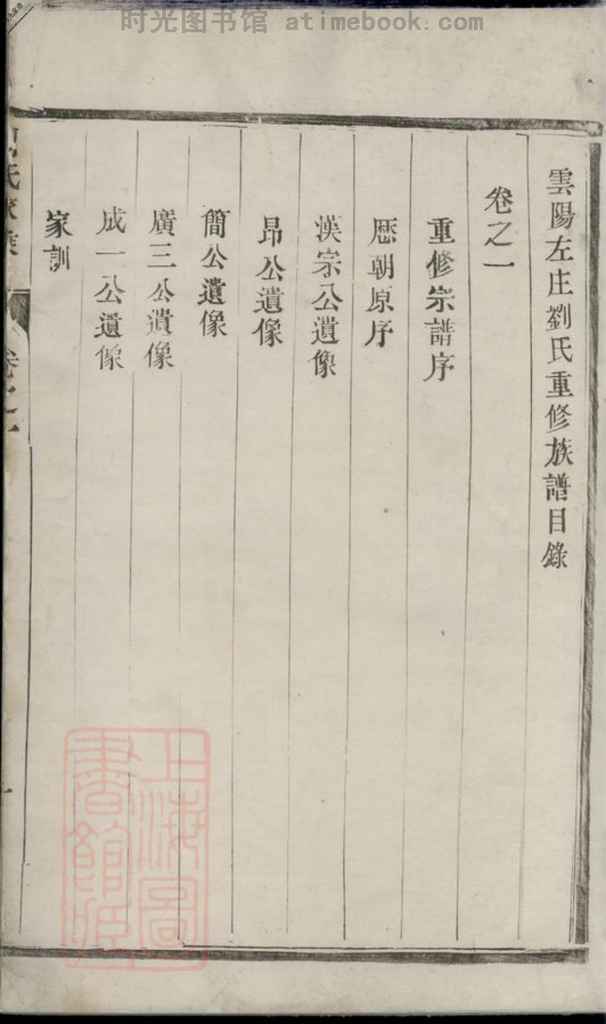 时光图书馆 atimebook.com
雲陽左庄劉氏重修族譜目錄
卷之一
重修宗譜序
歷朝原序
漢宗公遺像
昂公遺像
簡公遺像
廣三公遺像
成一公遺像
家訓
氏家乘
卷之一
一
上海圖書館藏